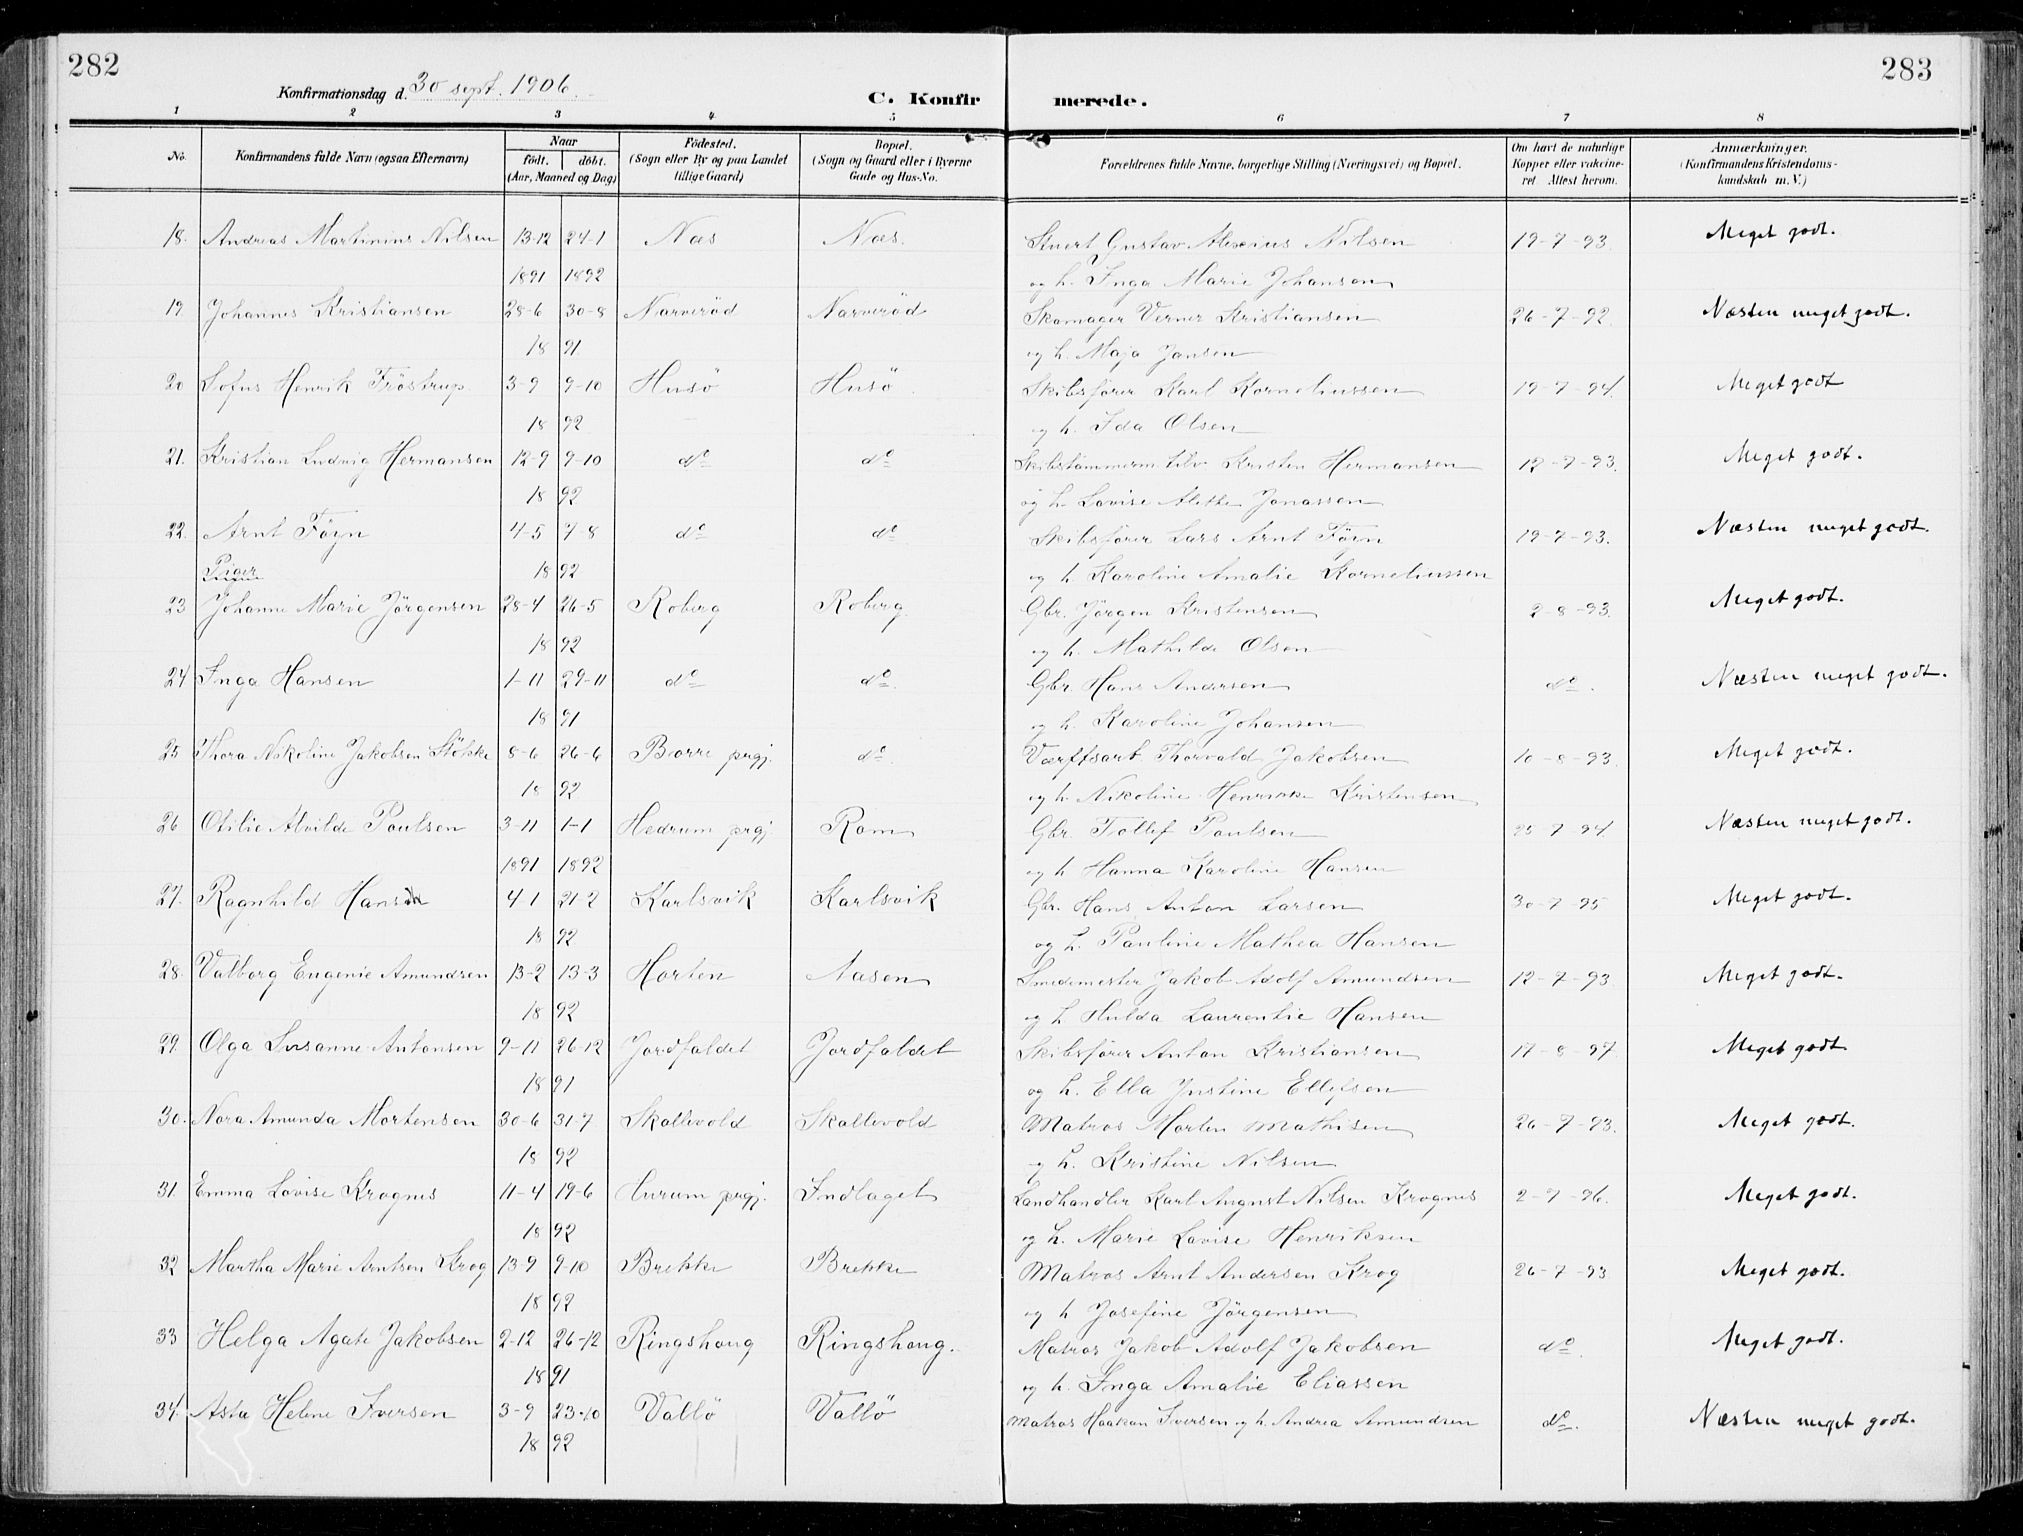 282
283
Konfirmationsdag d. 30 sept. 1906.
C. Konfirmerede.
1 2 3 4 5 6 7 8
No. Konfirmandens fulde Navn (ogsaa Efternavn) Naar födt. döbt. (Aar, Maaned og Dag) Födested. (Sogn eller By og paa Landet tillige Gaard) Bopæl. (Sogn og Gaard eller i Byerne Gade og Hus-No. Forældrenes fulde Navne, borgerlige Stilling (Næringsvei) og Bopæl. Om havt de naturlige Kopper eller vakcineret. Attest herom. Anmærkninger. (Konfirmandens Kristendomskundskab m. V.)
18. Andreas Martinius Nilsen 13-12 24-1 Næs Næs. Stuert Gustav Alexius Nilsen 19-7-93. Meget godt.
1891 1892 og h. Inga Marie Johansen
19. Johannes Kristiansen 28-6 30-8 Narverød Narverød Skomager Verner Kristiansen 26-7-92. Næsten meget godt.
18 91 og h. Maja Jansen
20 Sofus Henrik Fröstrup 3-9 9-10 Husö Husö Skibsfører Karl Korneliussen 19-7-94. Meget godt
18 92 og h. Ida Olsen
21. Kristian Ludvig Hermansen 12-9 9-10 do do Skibstømmerm. Kristen Hermansen 12-7-93. Meget godt.
18 92 og h. Lovise Alethe Jonassen
22. Arnt Föyn 4-5 7-8 do do Skibsfører Lars Arnt Föyn 19-7-93. Næsten meget godt.
Piger 18 92 og h. Karoline Amalie Korneliussen
23 Johanne Marie Jörgensen 28-4 26-5 Roberg Roberg. Gbr. Jörgen Kristensen 2-8-93. Meget godt.
18 92 og h. Mathilde Olsen
24 Inga Hansen 1-11 29-11 do do. Gbr. Hans Andersen do. Næsten meget godt.
18 91 og h. Karoline Johansen
25 Thora Nikoline Jakobsen Stökke 8-6 26-6 Borre prgj. do. Værftsarb. Thorvald Jakobsen 10-8-93. Meget godt.
18 92 og h. Nikoline Henrikke Kristensen
26 Otilie Alvilde Paulsen 3-11 1-1 Hedrum prgj. Rom Gbr. Tollef Paulsen 25-7-94. Næsten meget godt.
1891 1892 og h Hanna Karoline Hansen
27. Ragnhild Hansen 4-1 21-2 Karlsvik Karlsvik Gbr. Hans Anton Larsen 30-7-95 Meget godt.
18 92 og h. Pauline Mathea Hansen
28. Valborg Eugenie Amundsen 13-2 13-3 Horten Aasen Smedemester Jakob Adolf Amundsen 12-7-93. Meget godt.
18 92 og h Hulda Laurentie Hansen
29. Olga Susanne Antonsen 9-11 26-12 Jordfaldet Jordfaldet Skibsfører Anton Kristiansen 17-8-97. Meget godt
18 91 og h. Ella Justine Ellefsen
30. Nora Amunda Mortensen 30-6 31-7 Skallevold Skallevold Matros Morten Mathisen 26-7-93. Meget godt.
18 92 og h. Kristine Nilsen
31. Emma Lovise Krognes 11-4 19-6 Hurum prgj. Indlaget Landhandler Karl August Nilsen Krognes 2-9-96. Meget godt.
18 92 og h. Marie Lovise Henriksen
32 Martha Marie Arntsen Krog 13-9 9-10 Brekke Brekke Matros Arnt Andersen Krog 26-7-93. Meget godt.
18 92 og h Josefine Jörgensen
33 Helga Agate Jakobsen 2-12 26-12 Ringshoug Ringshoug. Matros Jakob Adolf Jakobsen do. Meget godt.
18 91 og h. Inga Amalie Eliassen
34. Asta Helene Iversen 3-9 23-10 Vallö Vallö Matros Haakon Iversen og h. Andrea Amundsen do. Næsten meget godt.
18 92